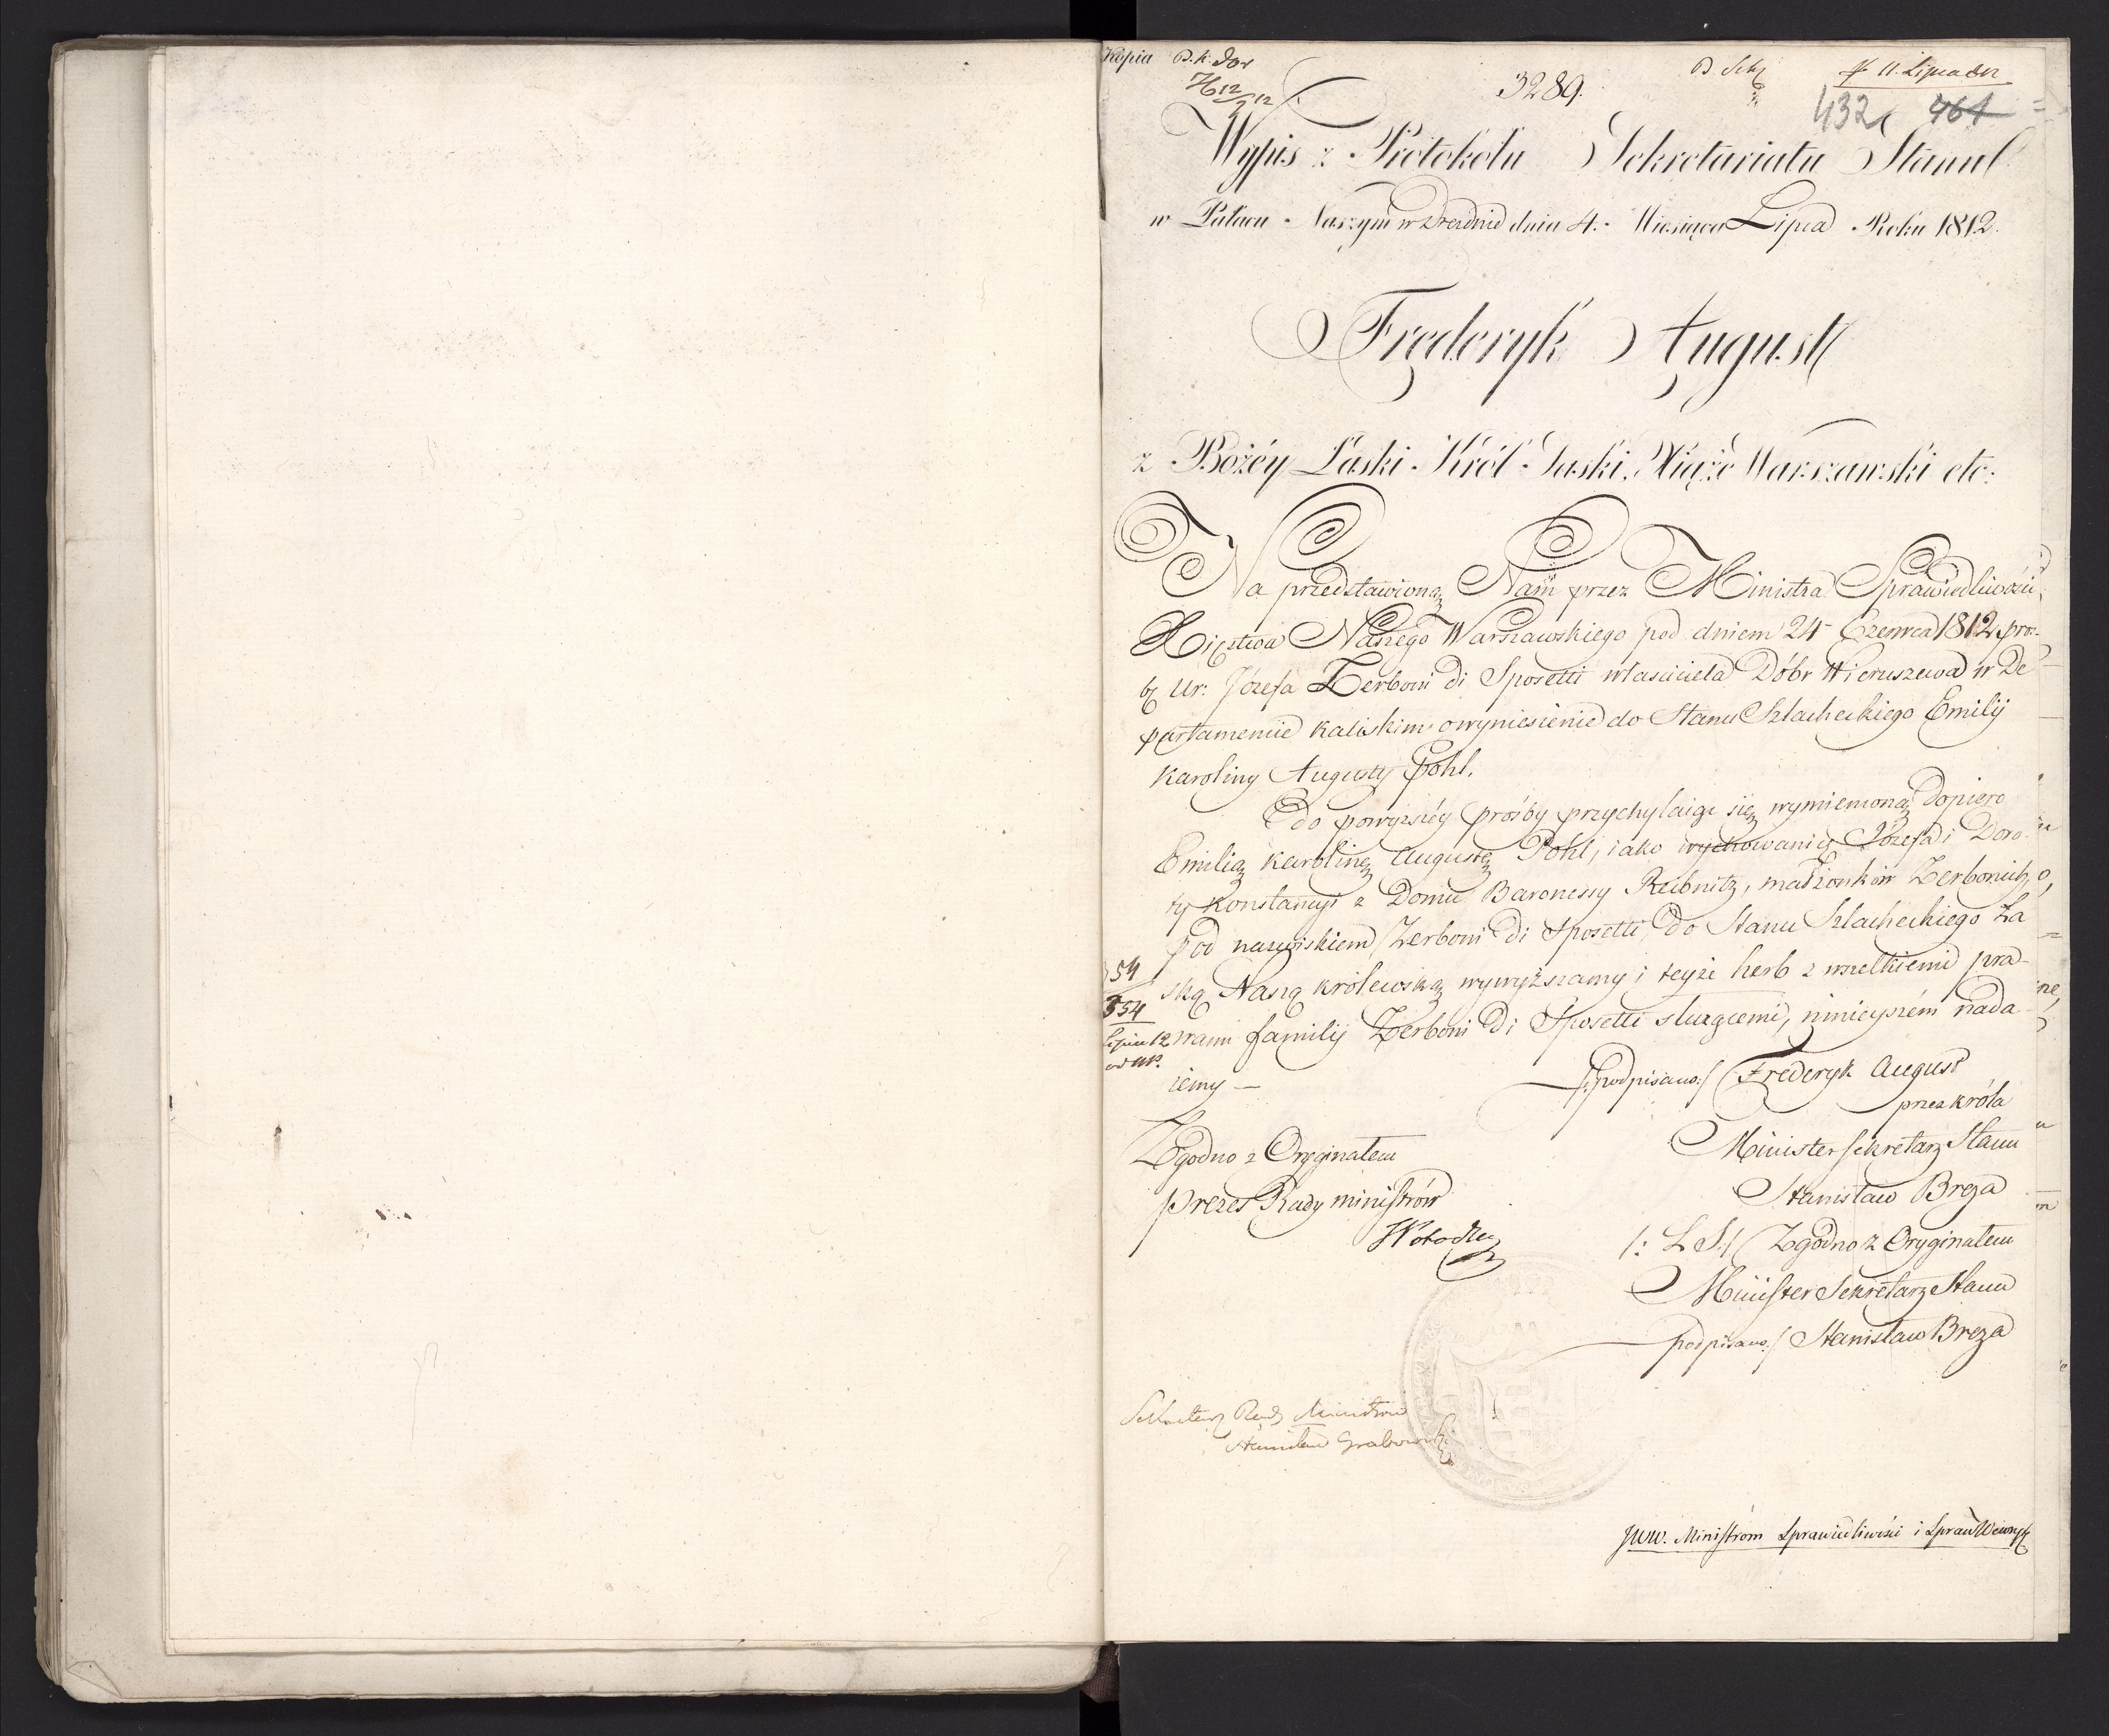 Kopia B. K. Dor
3289.
B. Sch
11. Lipca 812
432 464
Wypis z Protokołu Sekretariatu Stanu
w Pałacu Naszym w Dreźnie dnia 4. Miesiąca Lipca Roku 1812.
Fryderyk August
z Bożéy Łaski Król Saski, Xiąże Warszawski etc:
Na przedstawioną Nam przez Ministra Sprawiedliwości
Xięstwa Naszego Warszawskiego pod dniem 24 Czerwca 1812 proź-
bę Ur: Józefa Zerboni Di Sposetti właściciela Dóbr Wieruszewa w De
partamencie Kaliskim o wyniesienie do Stanu Szlacheckiego Emilij
Karoliny Augusty Pohl.
do powyższéy prośby przychylaiąc się, wymienioną dopiero
Emilią Karolinę Augustę Pohl, iako wychowanicę Józefa i Doro-
ty Konstancyi z Domu Baronessy Reibnitz, małżonków Zerbonich,
pod nazwiskiem Zerboni Di Sposetti do Stanu Szlacheckiego Ła
ską Naszą królewską wywyższamy i teyże herb z wszelkiemi pra-
wami familij Zerboni Di Sposetti służącemi, ninieyszém nada-
iemy —
54
554
Lipca 12
/:podpisano:/ Frederyk August
przez króla
Minister Sekretarz Stanu
Stanisław Breza
/: L S:/ Zgodno z Oryginałem
Minister Sekretarz Stanu
podpisano:/ Stanisław Breza
Zgodno z Oryginałem
Prezes Rady Ministrów
Sekretarz Rady Ministrów
Stanisław Grabowski
JWW. Ministrom Sprawiedliwości i Spraw Wewnę